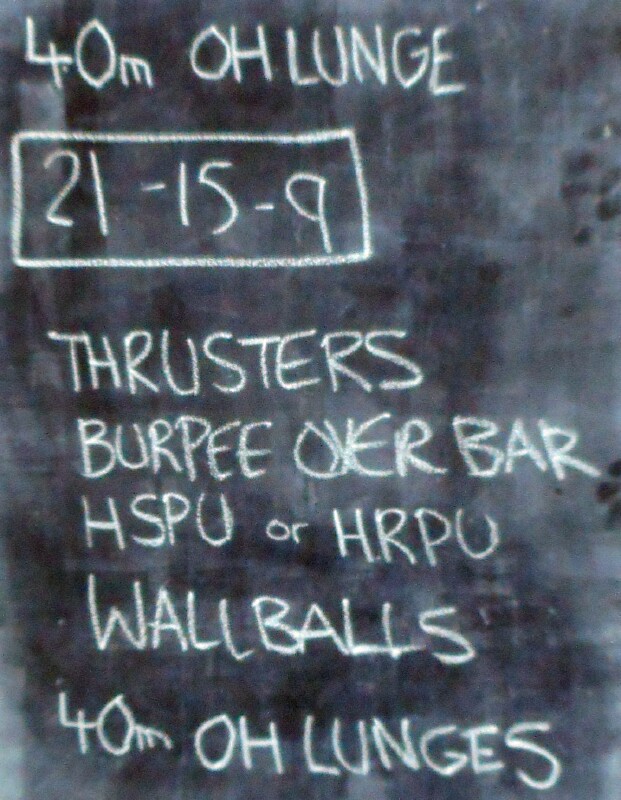 40m OH LUNGE
21-15-9
THRUSTERS
BURPEE OVER BAR
HSPU or HRPU
WALLBALLS
40m OH LUNGES